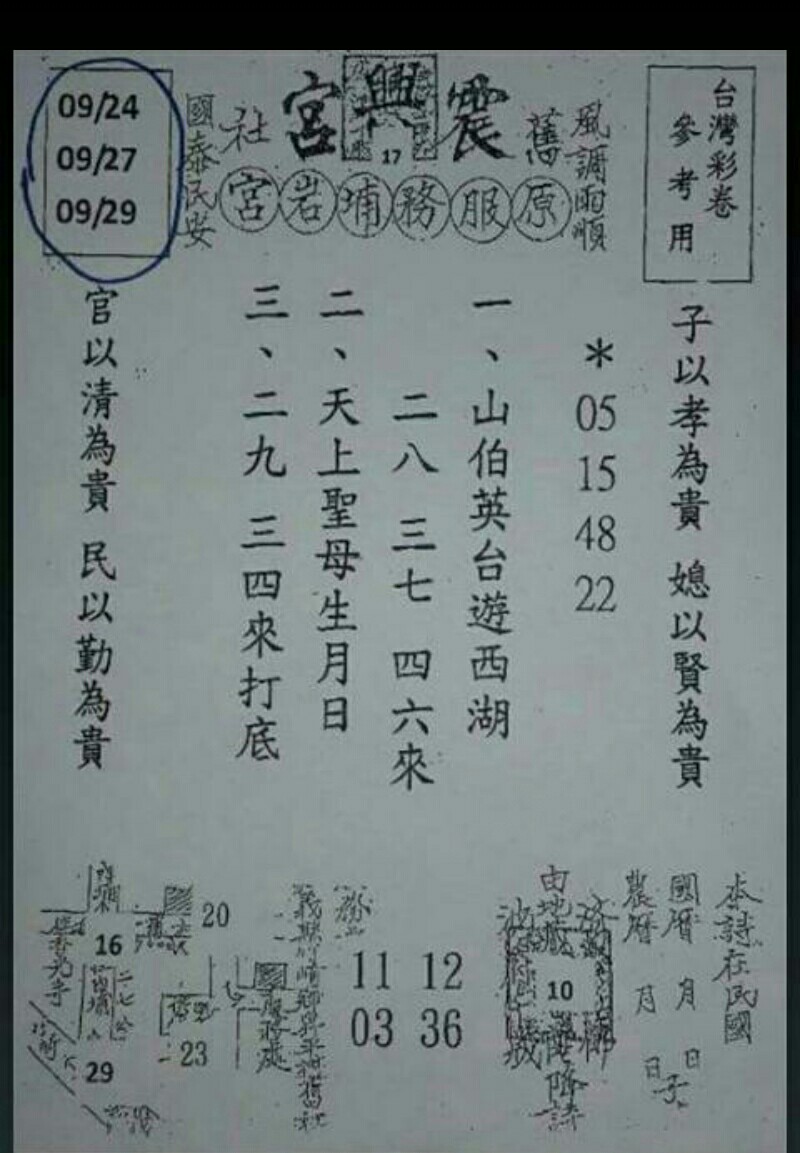 台灣彩卷
參考用
風調雨順
舊
震興宮
17
社
國泰民安
原服務埔岩宮
09/24
09/27
09/29
子以孝為貴 媳以賢為貴
*05 15 48 22
一、山伯英台遊西湖
二八 三七 四六來
二、天上聖母生月日
三、二九 三四來打底
官以清為貴 民以勤為貴
本詩在民國
國曆 月 日
農曆 月 日
10
降詩
11 12
03 36
20
16
23
29